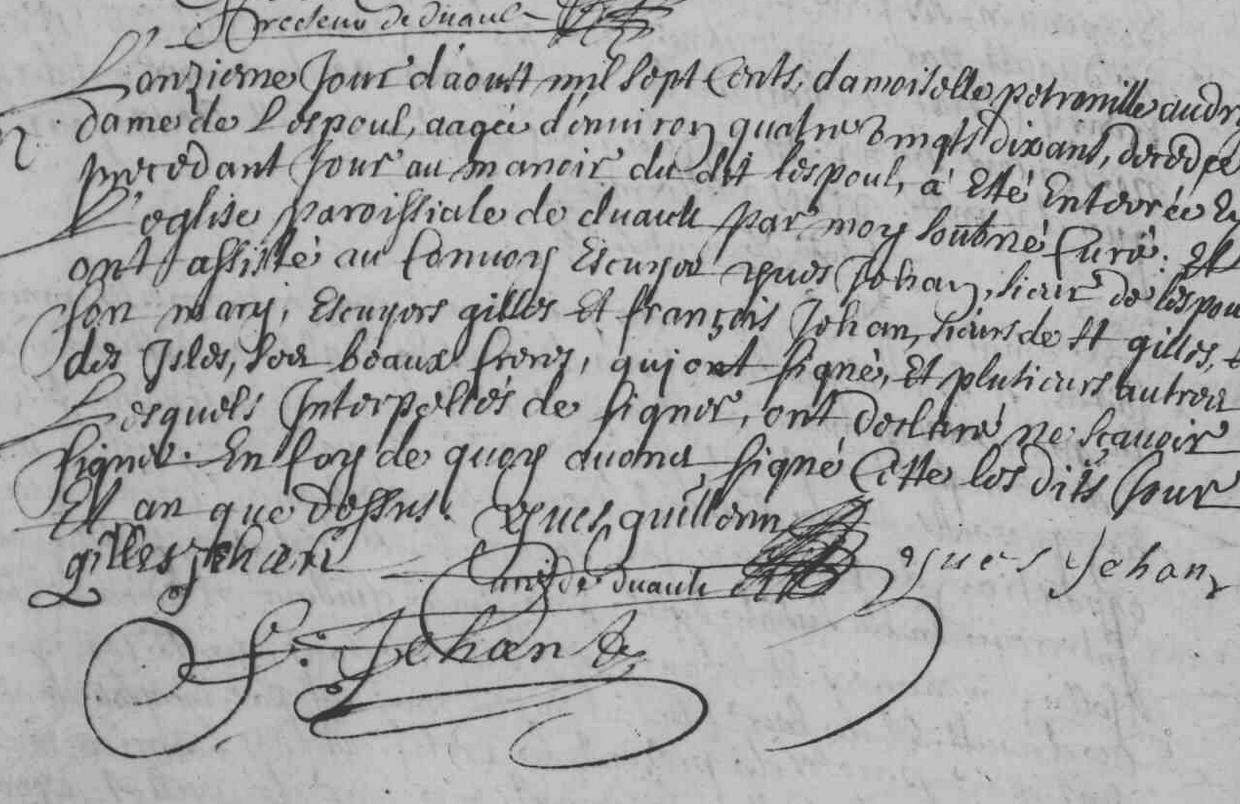 recteur de duault
L'onzieme Jour d'aoust mil sept Cents, damoiselle petronille audr
dame de Lespoul, aagée d'environ quatre vingts dix ans, décédée
precedant Jour au manoir du dit lespoul, a Esté Enterrée En
L'eglise paroissiale de duault par moy soubné Curé. Et
ont assisté au Convoy Escuyer yves Jehan, sieur de lespoul
son mary, Escuyers gilles Et françois Jehan, sieurs de st gilles, Et
des Isles, ses beaux freres, qui ont signé, Et plusieurs autres
Lesquels Interpellés de signer, ont declaré ne sçavoir
signer. En foy de quoy avons signé Cette les dits Jour
Et an que dessus. yves guillerm
gilles jehan curé de duault yves Jehan
F. Jehan